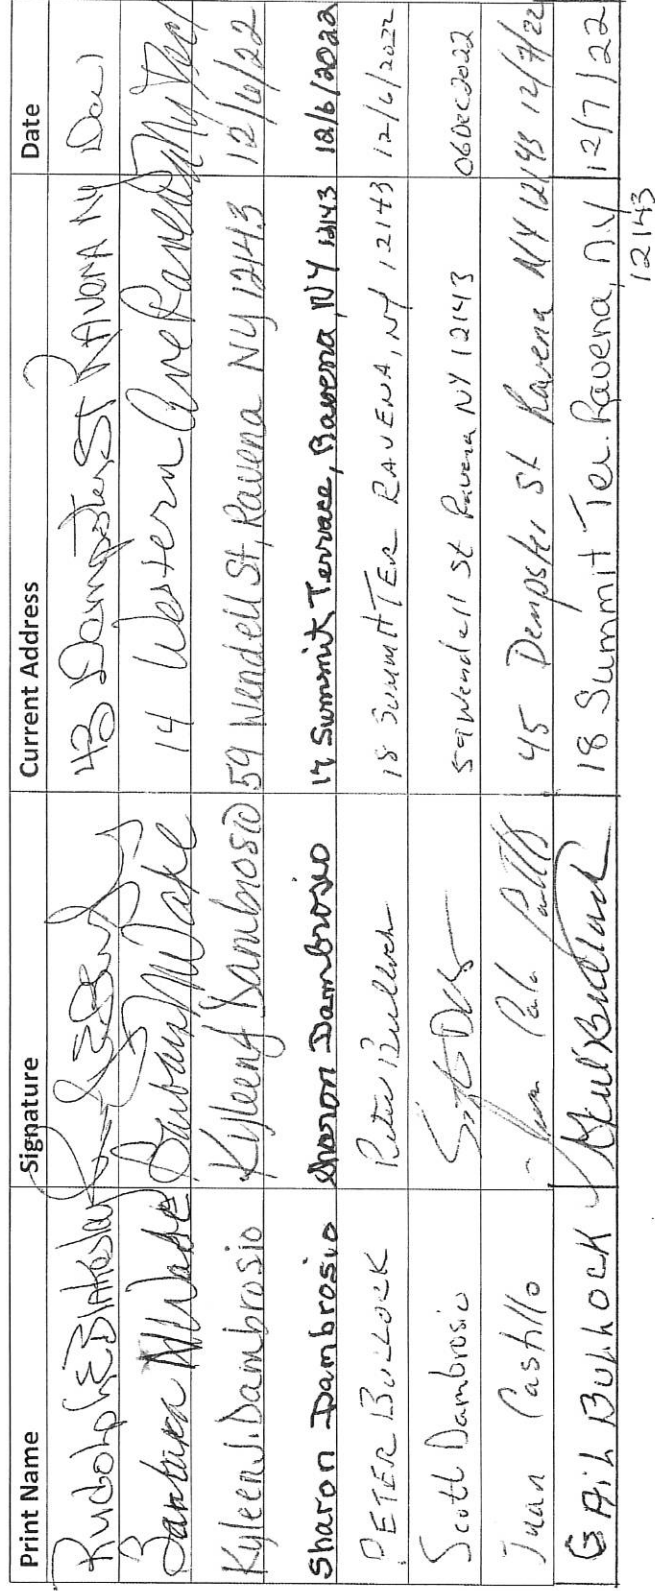 Print Name Signature Current Address Date
Rudolph E Blakeslee 43 Dempster St RAVENA NY Dec 1
Barbara M Wade Barbara M Wade 14 Western Ave Ravena Ny
Kyleen J. Dambrosio Kyleen J Dambrosio 59 Wendell St, Ravena NY 12143 12/6/22
Sharon Dambrosio Sharon Dambrosio 14 Summit Terrace, Ravena, NY 12143 12/6/2022
PETER BULLOCK Peter Bullock 18 SUMMIT TER RAVENA, NY 12143 12/6/2022
Scott Dambrosio 59 Wendell St Ravena NY 12143 06Dec2022
Juan Castillo 45 Dempster St Ravena NY 12143 12/7/22
GAiL BULLOCK 18 Summit Ter. Ravena, n.y 12/7/22
12143